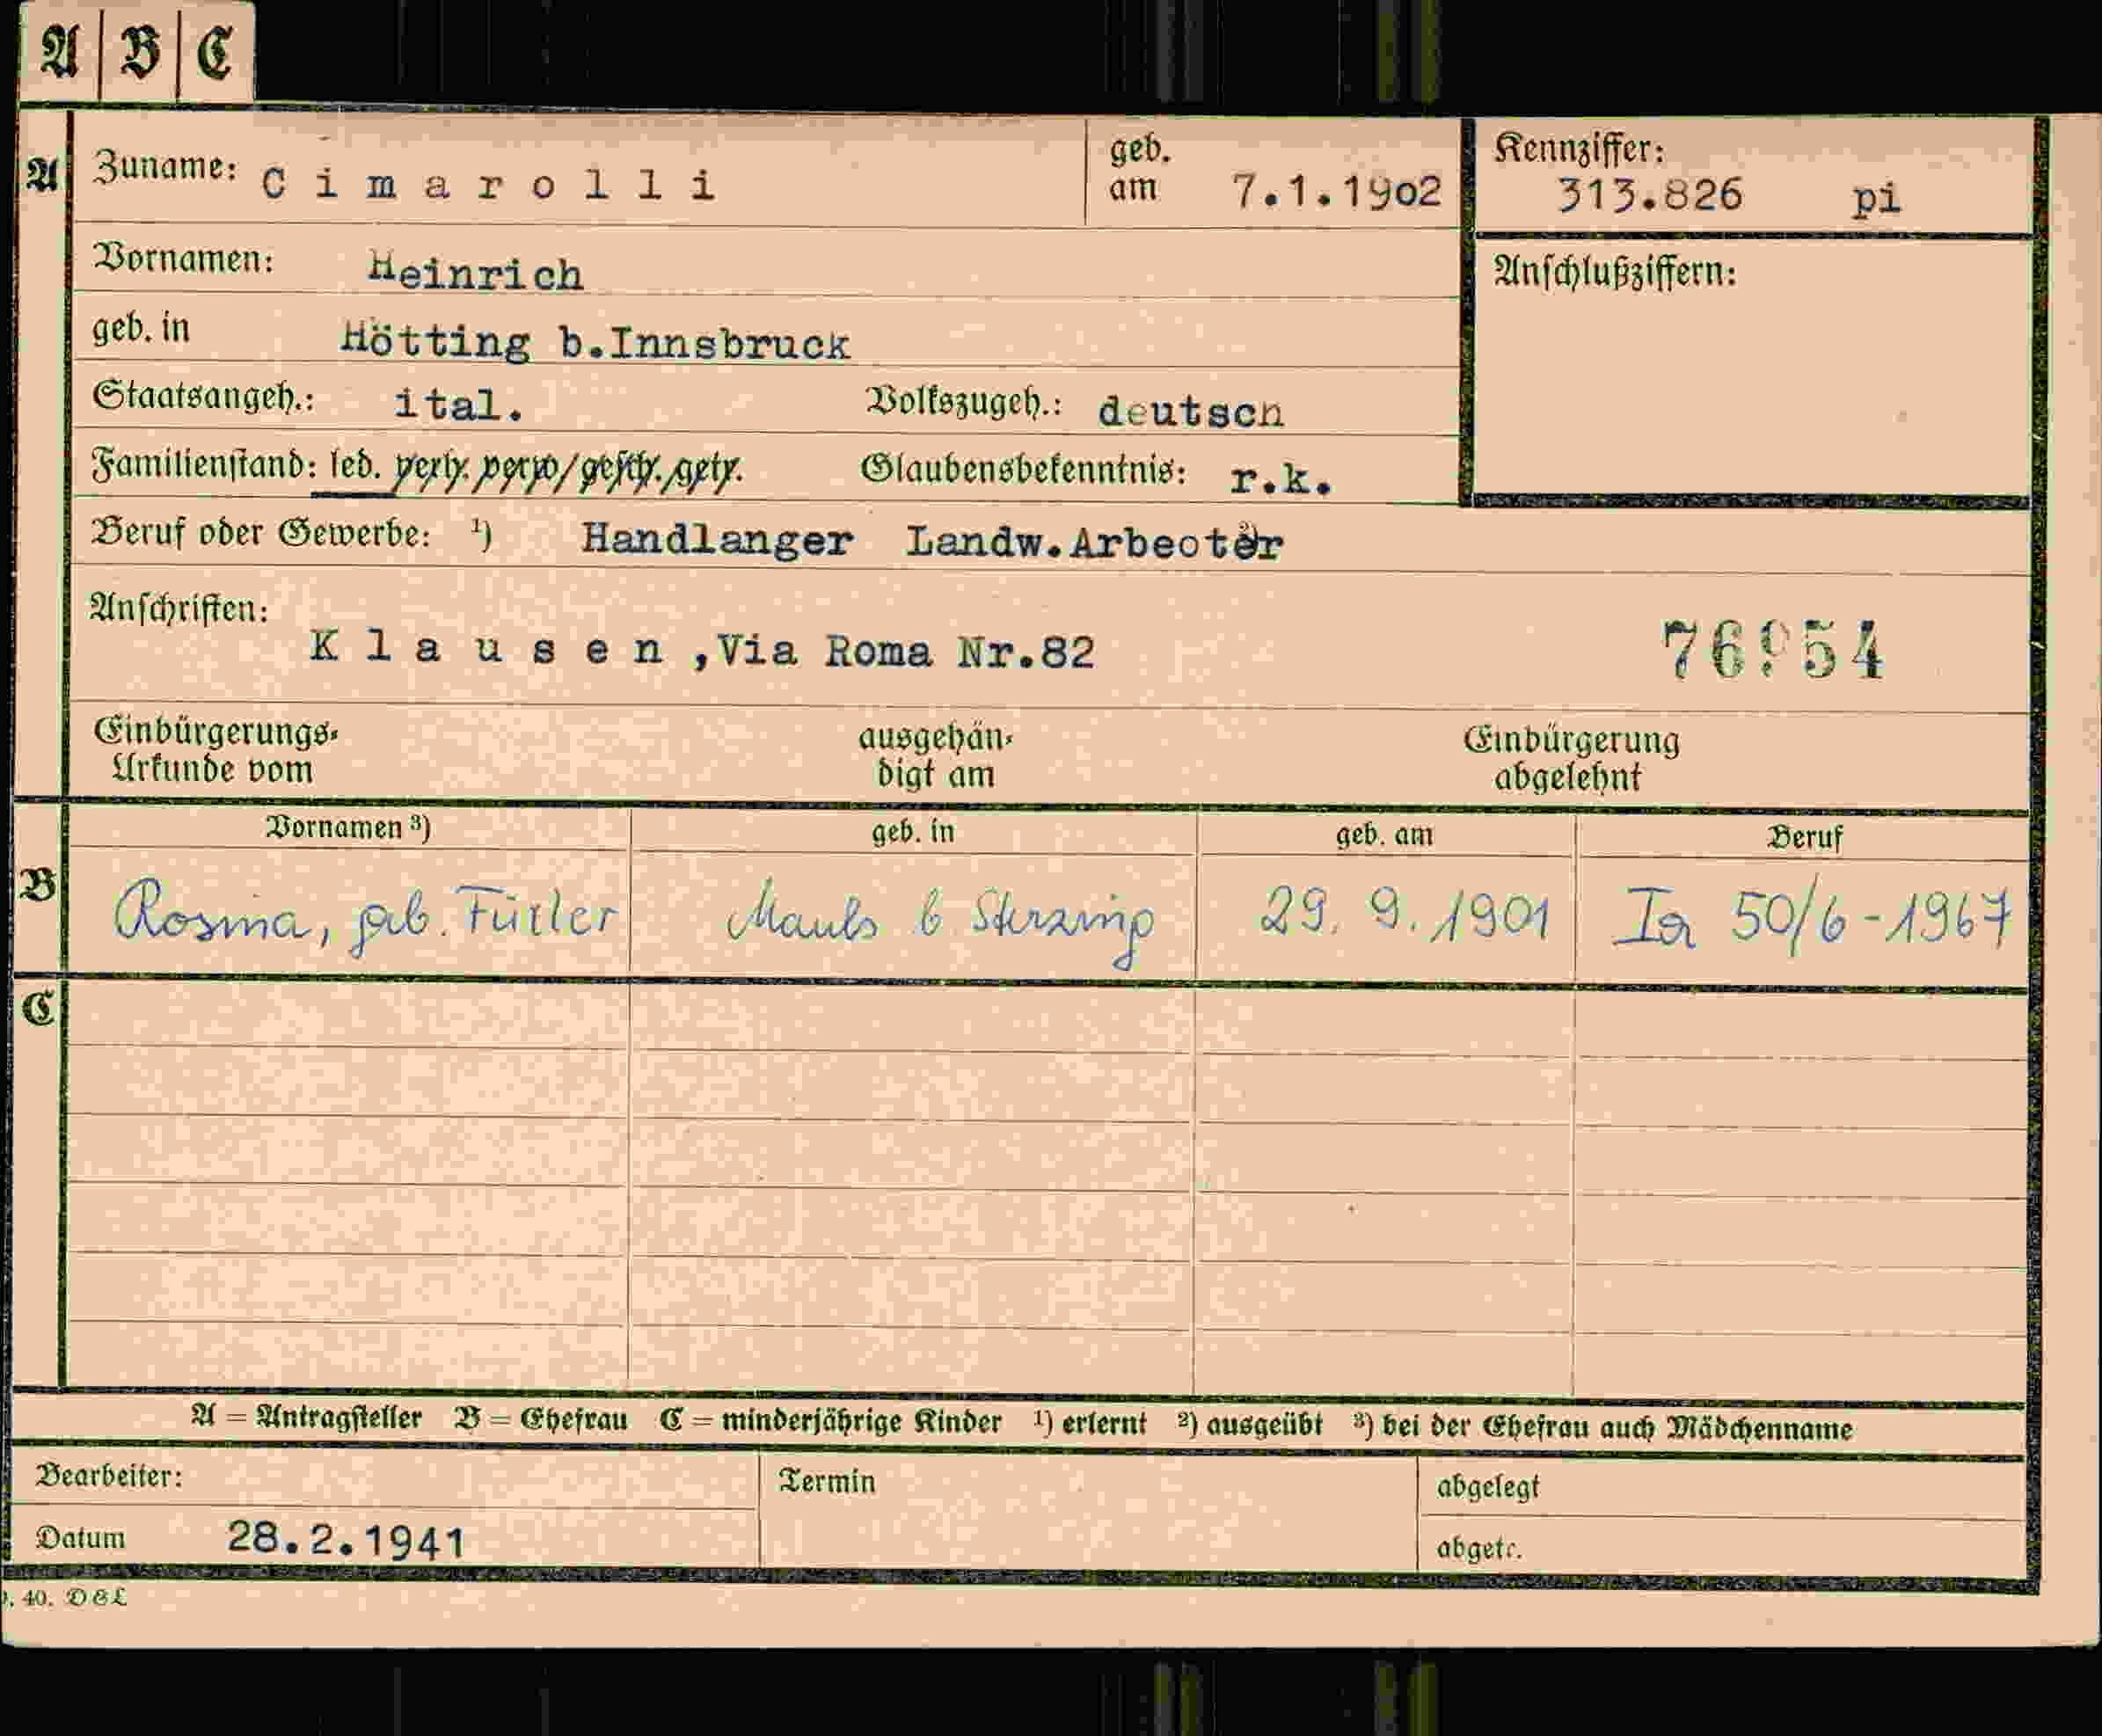 A B C
A Zuname: Cimarolli geb. am 7.1.1902 Kennziffer: 313.826 pi
Vornamen: Heinrich Anschlußziffern:
geb. in Hötting b.Innsbruck
Staatsangeh.: ital. Volkszugeh.: deutsch
Familienstand: led. verh. verw/gesch./getr. Glaubensbekenntnis: r.k.
Beruf oder Gewerbe: ¹) Handlanger Landw.Arbeoter
Anschriften:
Klausen,Via Roma Nr.82
Einbürgerungs- ausgehän- Einbürgerung
Urkunde vom digt am abgelehnt
Vornamen ³) geb. in geb. am Beruf
B Rosina, geb. Mauls b Sterzing 29. 9. 1901 Ia 50/6-1967
C
A = Antragsteller B = Ehefrau C = minderjährige Kinder ¹) erlernt ²) ausgeübt ³) bei der Ehefrau auch Mädchenname
Bearbeiter: Termin abgelegt
Datum 28.2.1941 abgetr.
40. D&L